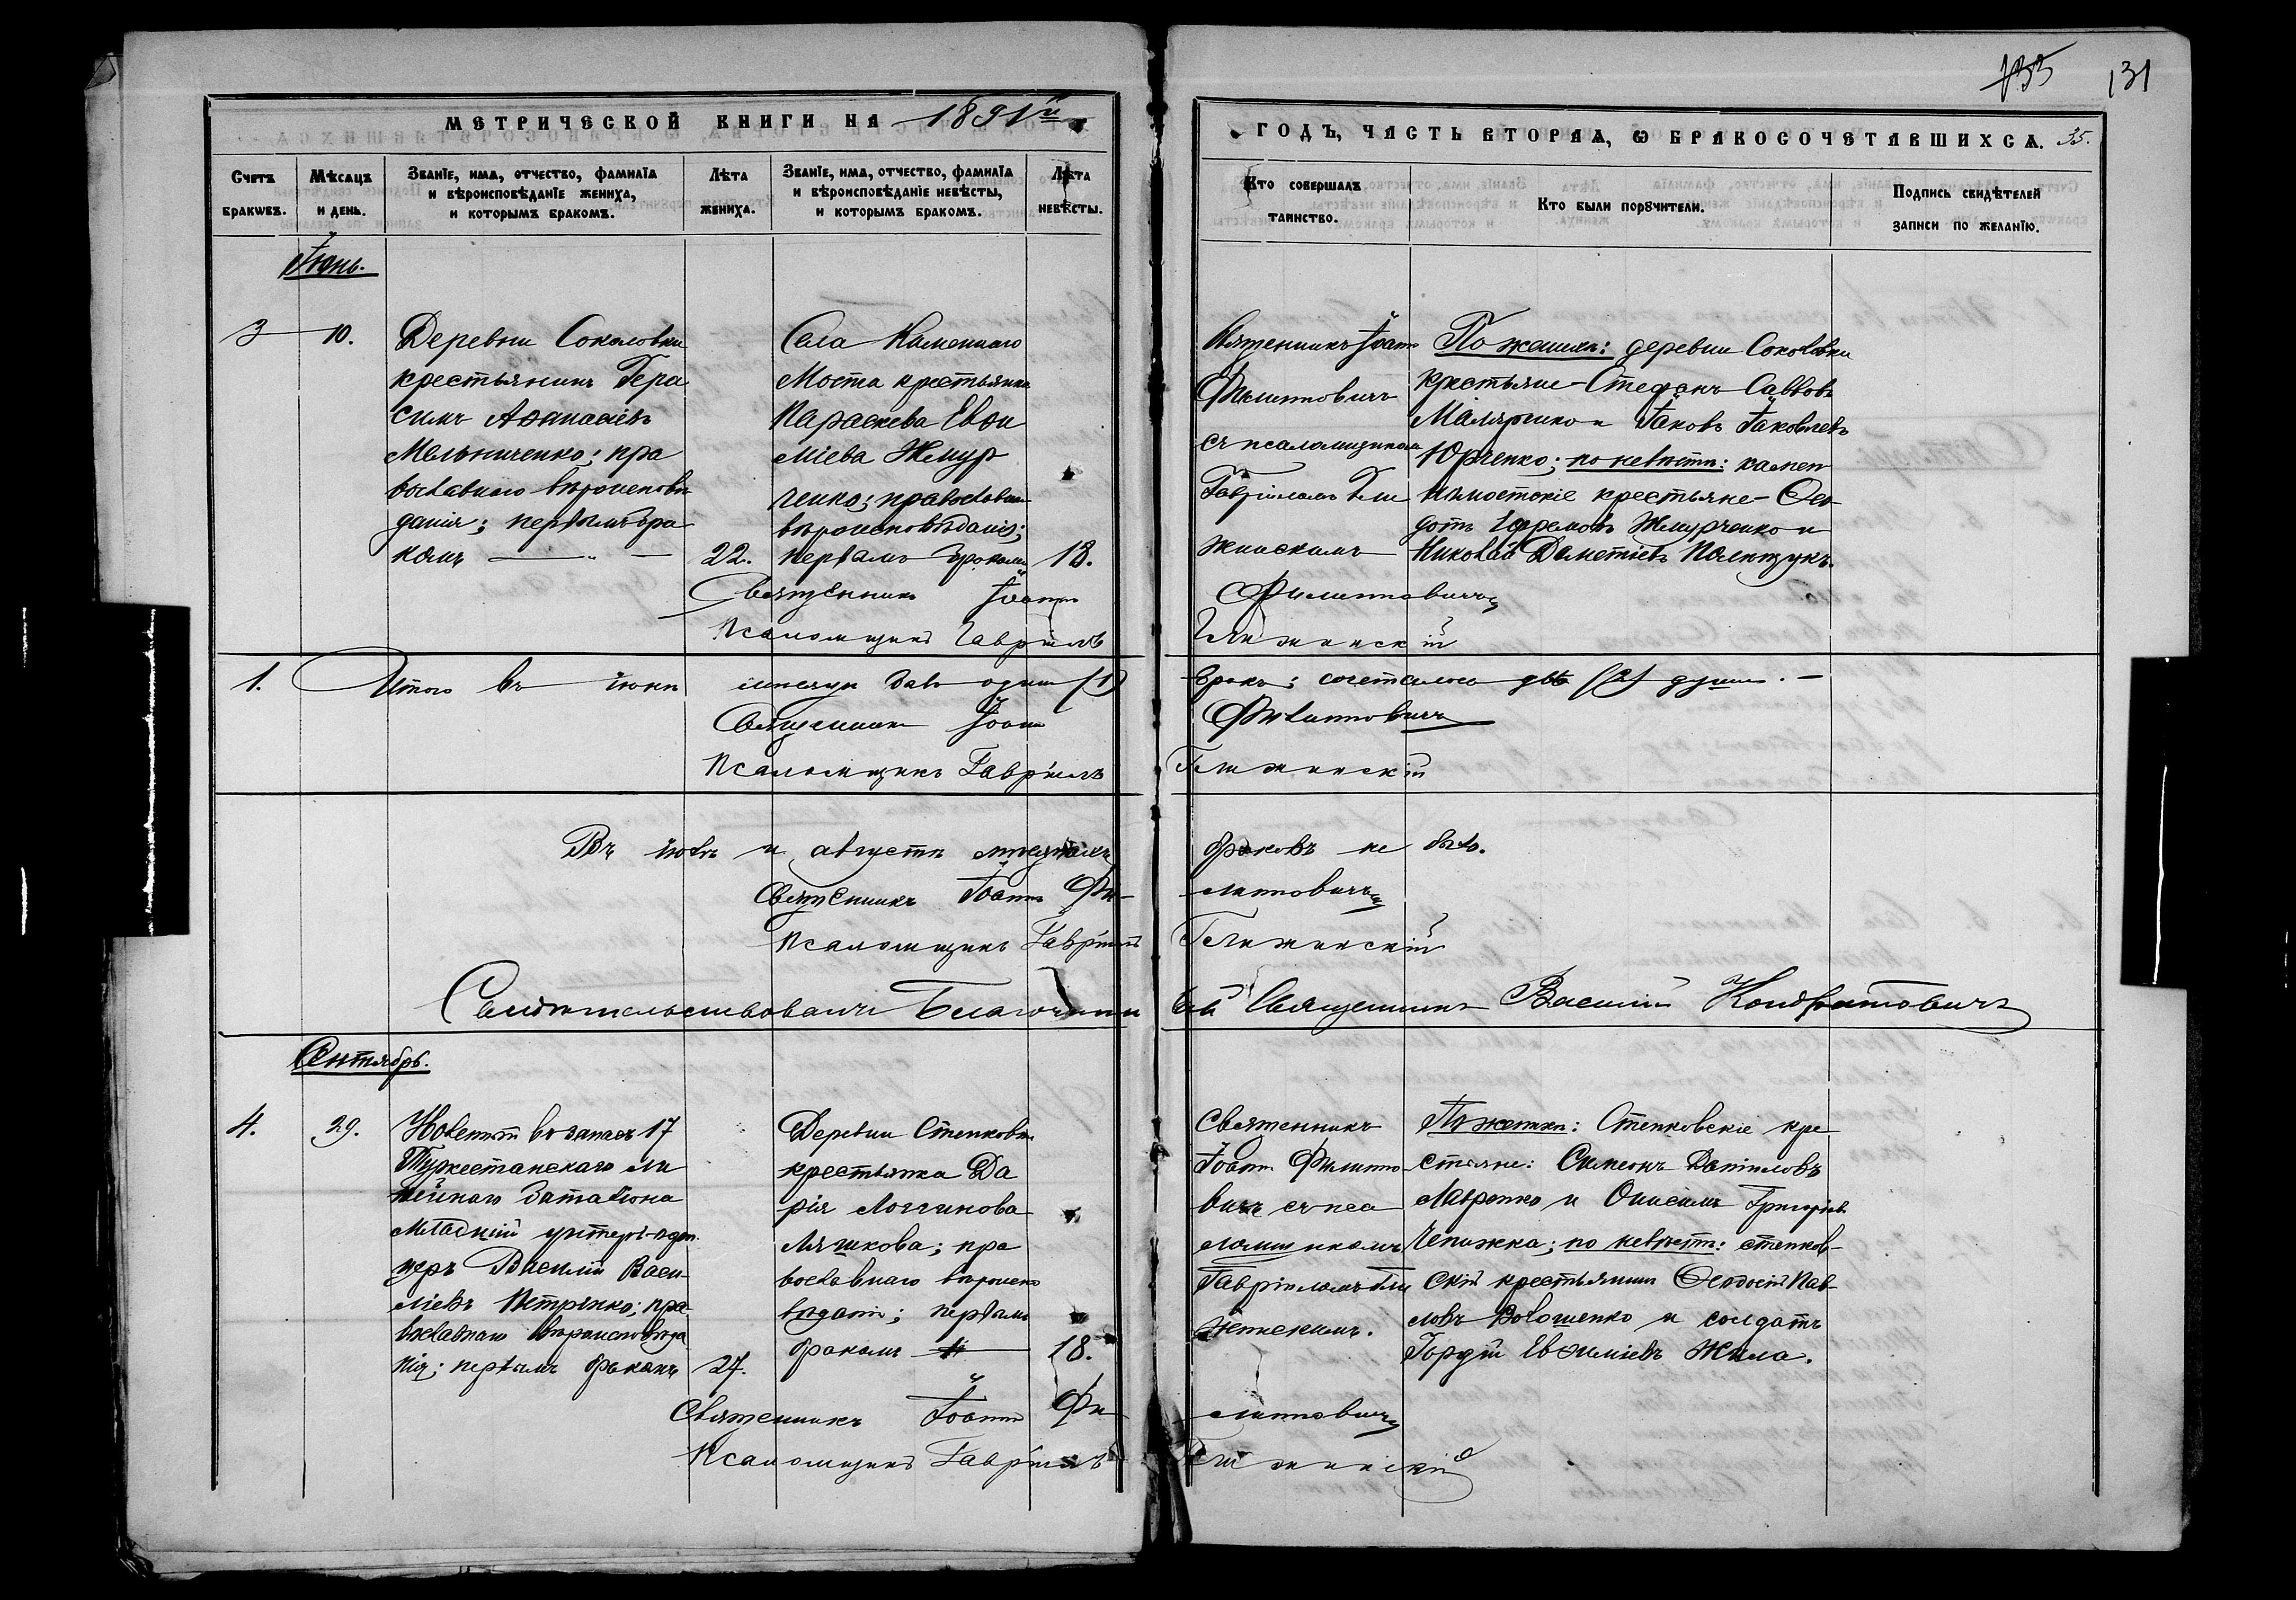 135 131
МЕТРИЧЕСКОЙ КНИГИ НА 1891й
ГОДЪ, ЧАСТЬ ВТОРАЯ, Ѡ БРАКОСОЧЕТАВШИХСЯ. 35.
Счетъ браковъ.
Мѣсяцъ и день.
Званіе, имя, отчество, фамилія
и вѣроисповѣданіе жениха,
и которымъ бракомъ.
Лѣта
жениха.
Званіе, имя, отчество, фамилія
и вѣроисповѣданіе невѣсты,
и которымъ бракомъ.
Лѣта
невѣсты.
Кто совершалъ
таинство.
Кто были поручители.
Подпись свидѣтелей
записи по желанію.
Іюнь.
3 10.
Деревни Соколовки
крестьянинъ Гера
симъ Аѳанасіевъ
Мельниченко; пра
вославнаго вѣроисповѣ
данія; первымъ бра
комъ
22.
Села Каменнаго
Моста крестьянка
Параскева Евѳи
міева Жмур
ченко; православн
вѣроисповѣданія;
первымъ бракомъ
18.
Священникъ Іоаннъ
Филипповичъ
съ псаломщикомъ
Гавріиломъ Гли
жинскимъ
По женихѣ: деревни Соколовки
крестьяне - Стефанъ Саввовъ
Маляренко и Іаковъ Іаковлевъ
Юрченко; по невѣстѣ: камен
номостскіе крестьяне - Ѳео
дотъ Ефремовъ Жмурченко и
Николай Дометіевъ Полтщукъ.
Священникъ Іоаннъ Филипповичъ
Псаломщикъ Гавріилъ Глижинскій
1. Итого въ іюнѣ мѣсяцѣ былъ одинъ (1) бракъ; сочеталось двѣ (2) души.
Священникъ Іоаннъ Филипповичъ
Псаломщикъ Гавріилъ Глижинскій
Въ іюлѣ и августѣ мѣсяцахъ браковъ не было.
Священникъ Іоаннъ Филипповичъ
Псаломщикъ Гавріилъ Глижинскій
Свидѣтельствовалъ Благочинный Священникъ Василій Кондратовичъ
Сентябрь.
4. 29.
въ запасъ 17
Туркестанскаго ли
нейнаго баталіона
младшій унтеръ-офи
церъ Василій Васи
ліевъ Петренко; пра
вославнаго вѣроисповѣда
нія; первымъ бракомъ
27.
Деревни Стенковки
крестьянка Да
рія Логгинова
Ляшкова; пра
вославнаго вѣроиспо
вѣданія; первымъ
бракомъ
18.
Священникъ
Іоаннъ Филиппо
вичъ съ пса
ломщикомъ
Гавріиломъ Гли
жинскимъ.
По женихѣ: Стенковскіе кре
стьяне: Симеонъ Даніиловъ
Лавренко и Онисимъ Григоріев
Чепижка; по невѣстѣ: стенков-
скій крестьянинъ Ѳеодосій Пав-
ловъ Волошенко и солдатъ
Гордій Евѳиміевъ Жила.
Священникъ Іоаннъ Филипповичъ
Псаломщикъ Гавріилъ Глижинскій